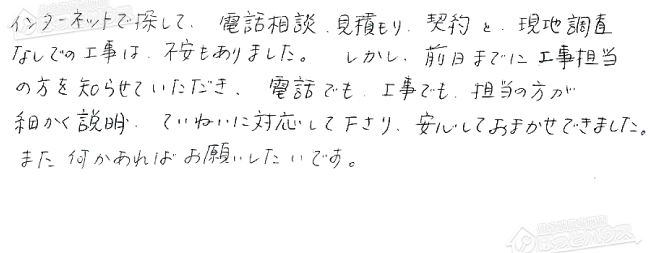 インターネットで探して、電話相談、見積もり、契約と、現地調査
なしでの工事は、不安もありました。しかし、前日までに工事担当
の方を知らせていただき、電話でも、工事でも、担当の方が
細かく説明、ていねいに対応して下さり、安心しておまかせできました。
また何かあればお願いしたいです。